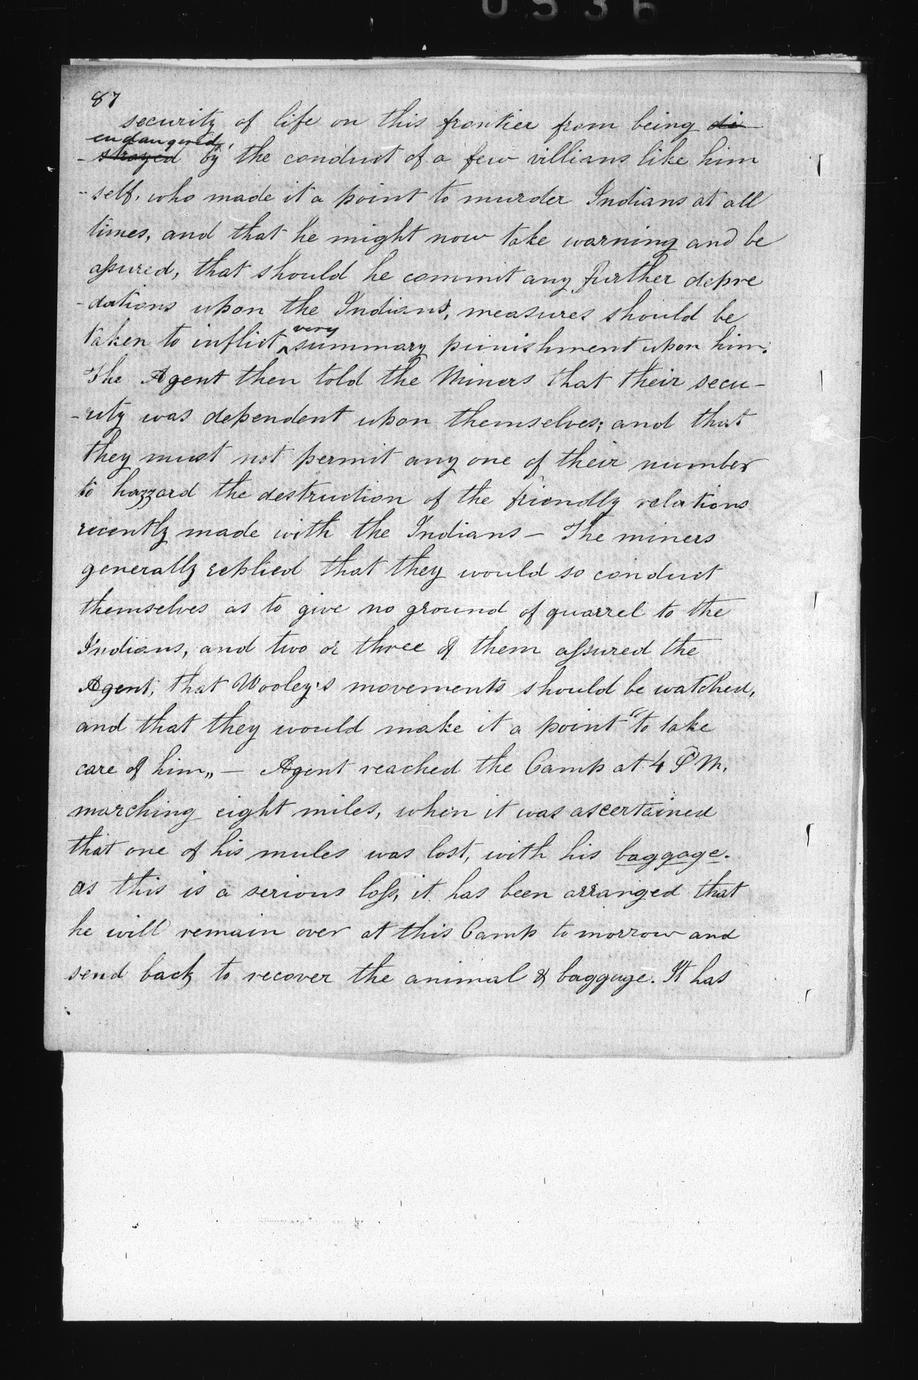 0536
87
security of life on this frontier from being di
endangered,
- stroyed by the conduct of a few villians like him
- self. who made it a point to murder Indians at all
times, and that he might now take warning and be
assured, that should he commit any further depre
- dations upon the Indians, measures should be
very
taken to inflict ^ summary punishment upon him.
The Agent then told the Miners that their secu-
- rity was dependent upon themselves; and that
they must not permit any one of their number
to hazzard the destruction of the friendly relations
recently made with the Indians - The miners
generally replied that they would so conduct
themselves as to give no ground of quarrel to the
Indians, and two or three of them assured the
Agent, that Wooley's movements should be watched,
and that they would make it a point "to take
care of him„ - Agent reached the Camp at 4 P.M.
marching eight miles, when it was ascertained
that one of his mules was lost, with his baggage.
as this is a serious loss, it has been arranged that
he will remain over at this Camp tomorrow and
send back to recover the animal & baggage. It has